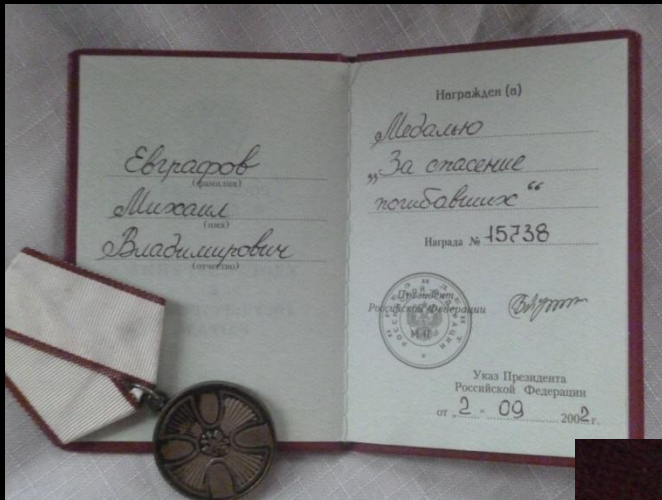 Евграфов
(фамилия)
Михаил
(имя)
Владимирович
(отчество)
Награжден (а)
Медалью
„За спасение
погибавших“
Награда № 15738
Президент
Российской Федерации
М.П.
Указ Президента
Российской Федерации
от „2 " 09 2002 г.